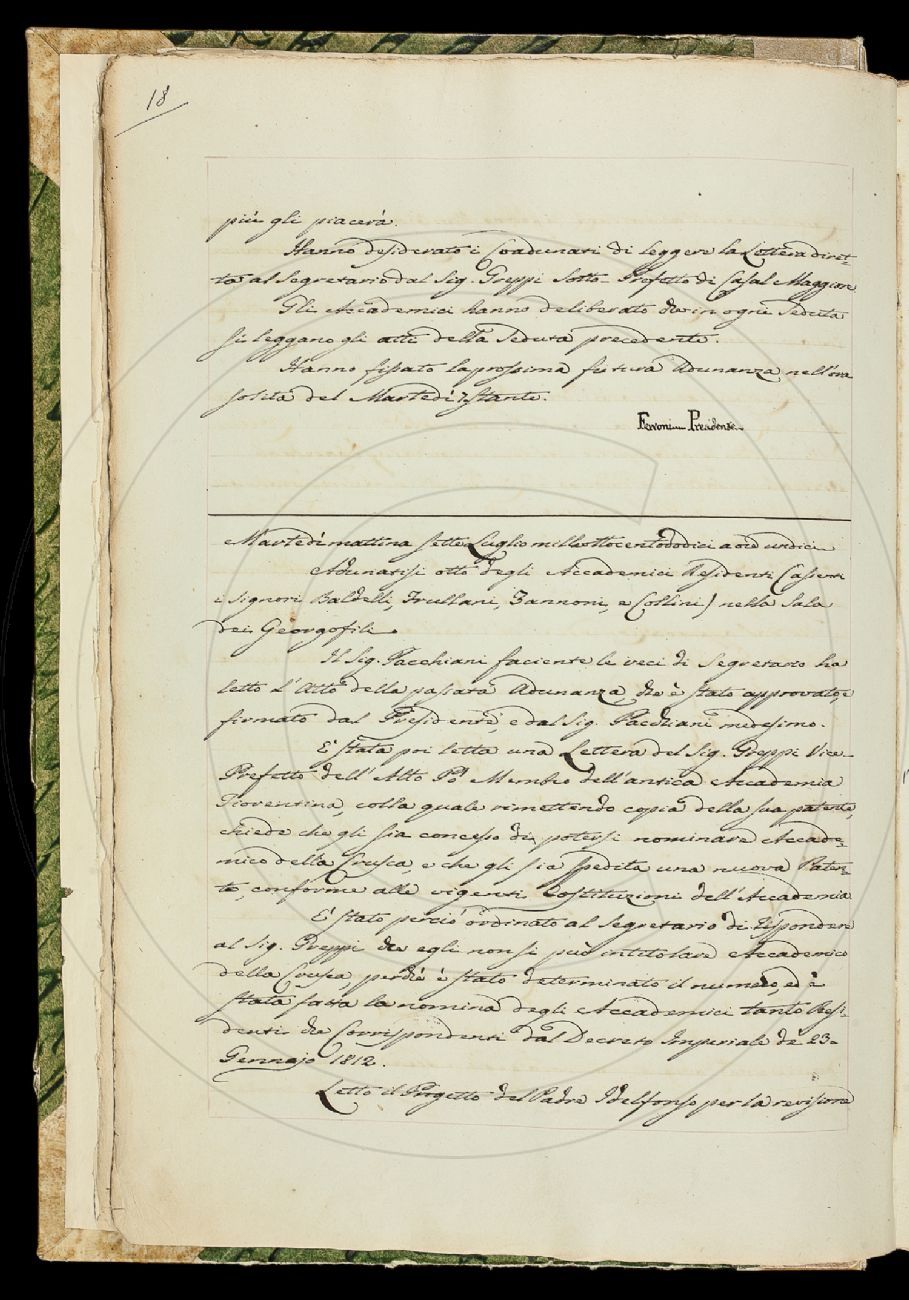 18
più gli piacerà.
Hanno desiderato i Coadunati di leggere la Lettera diret-
ta al Segretario dal Sig. Greppi Sotto-Prefetto di Casal Maggiore
Gli Accademici hanno deliberato che in ogni Seduta
si leggano gli atti della Seduta precedente.
Hanno fissato la prossima futura Adunanza nell'ora
solita del Martedì 7. stante.
Ferroni Presidente
Martedì mattina sette Luglio milleottocentododici a ore undici
Adunatisi otto degli Accademici Residenti (assenti
i Signori Baldelli, Frullani, Zannoni, e Collini) nella Sala
dei Georgofili.
Il Sig. Pacchiani faciente le veci di Segretario ha
letto l'Atto della passata Adunanza, che è stato approvato, e
firmato dal Presidente, e dal Sig. Pacchiani medesimo.
E' stata poi letta una Lettera del Sig. Greppi Vice-
Prefetto dell'Alto Pò Membro dell'antica Accademia
Fiorentina, colla quale rimettendo copia della sua patente,
chiede che gli sia concesso di potersi nominare Accade-
mico della Crusca, e che gli sia spedita una nuova Paten-
te, conforme alle vigenti Costituzioni dell'Accademia
E' stato perciò ordinato al Segretario di rispondere
al Sig. Greppi che egli non si può intitolare Accademico
della Crusca, perchè è stato determinato il numero, ed è
stata fatta la nomina degli Accademici tanto Resi-
denti che Corrispondenti dal Decreto Imperiale de 23.
Gennajo 1812.
Letto il Progetto del Padre Idelfonso per la revisione